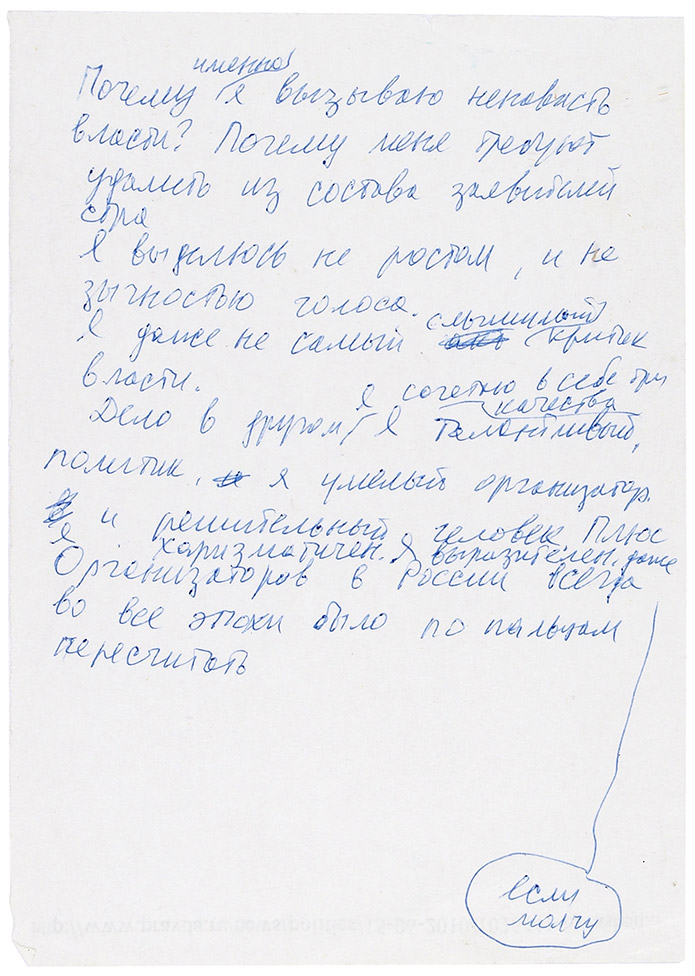 именно
Почему я вызываю ненависть
власти? Почему меня требуют
удалить из состава заявителей
Я выделюсь не ростом, и не
зычностью голоса.
Я даже не самый сильный критик
власти.
я сочетаю в себе три
качества
Дело в другом, я талантливый
политик, я умелый организатор.
и решительный человек Плюс
я харизматичен. Я выразителен, даже
Организаторов в России всегда
во все эпохи было по пальцам
пересчитать
если
молчу